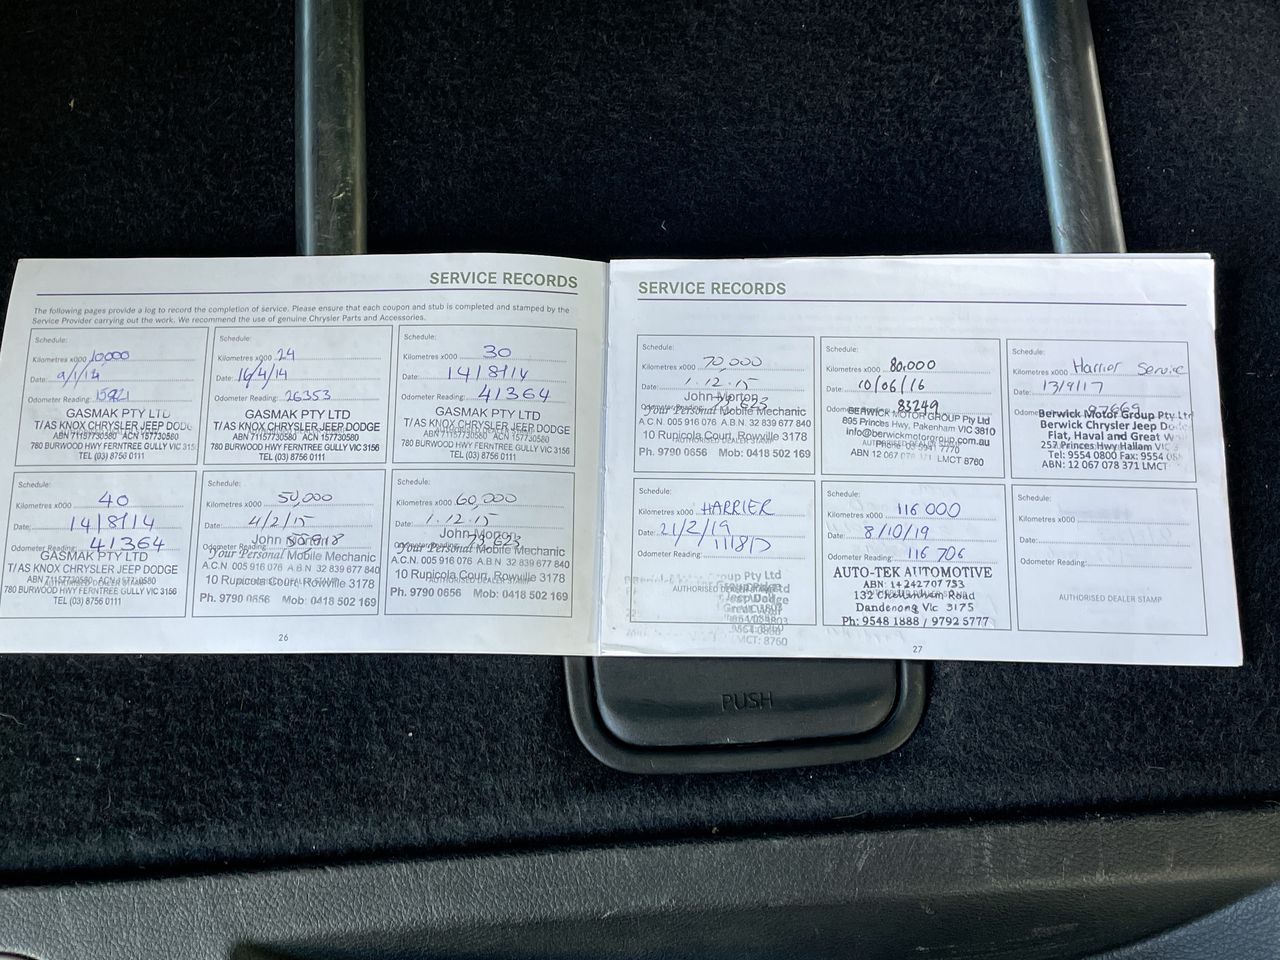 SERVICE RECORDS
The following pages provide a log to record the completion of service. Please ensure that each coupon and stub is completed and stamped by the
Service Provider carrying out the work. We recommend the use of genuine Chrysler Parts and Accessories.
Schedule:
Kilometres x000 10,000
Date: 9/1/14
Odometer Reading:
GASMAK PTY LTD
T/AS KNOX CHRYSLER JEEP DODGE
ABN 71157730580 ACN 157730580
780 BURWOOD HWY FERNTREE GULLY VIC 315
TEL (03) 8756 0111
Schedule:
Kilometres x000 24
Date: 16/4/14
Odometer Reading: 26353
GASMAK PTY LTD
T/AS KNOX CHRYSLER JEEP DODGE
ABN 71157730580 ACN 157730580
780 BURWOOD HWY FERNTREE GULLY VIC 3156
TEL (03) 8756 0111
Schedule:
Kilometres x000 30
Date: 14/8/14
Odometer Reading: 41364
GASMAK PTY LTD
T/AS KNOX CHRYSLER JEEP DODGE
ABN 71157730580 ACN 157730580
780 BURWOOD HWY FERNTREE GULLY VIC 3156
TEL (03) 8756 0111
Schedule:
Kilometres x000 40
Date: 14/8/14
Odometer Reading: 41364
GASMAK PTY LTD
T/AS KNOX CHRYSLER JEEP DODGE
ABN 71157730580 ACN 157730580
780 BURWOOD HWY FERNTREE GULLY VIC 3156
TEL (03) 8756 0111
Schedule:
Kilometres x000 50,000
Date: 4/2/15
Odometer Reading:
John Morton
Your Personal Mobile Mechanic
A.C.N. 005 916 076 A.B.N. 32 839 677 840
10 Runicola Court, Rowville 3178
Ph. 9790 0656 Mob: 0418 502 169
Schedule:
Kilometres x000 60,000
Date: 1.12.15
Odometer Reading:
John Morton
Your Personal Mobile Mechanic
A.C.N. 005 916 076 A.B.N. 32 839 677 840
10 Runicola Court, Rowville 3178
Ph. 9790 0656 Mob: 0418 502 169
26
SERVICE RECORDS
Schedule:
Kilometres x000 70,000
Date: 1.12.15
John Morton
Your Personal Mobile Mechanic
A.C.N. 005 916 076 A.B.N. 32 839 677 840
10 Runicola Court, Rowville 3178
Ph. 9790 0656 Mob: 0418 502 169
Schedule:
Kilometres x000 80,000
Date: 10/06/16
83249
BERWICK MOTOR GROUP Pty Ltd
895 Princes Hwy, Pakenham VIC 3810
info@berwickmotorgroup.com.au
ABN 12 067 LMCT 8760
Schedule:
Kilometres x000 Harrier Service
Date: 13/9/17
Berwick Motor Group Pty Ltd
Berwick Chrysler Jeep Dodge
Fiat, Haval and Great W
257 Princes Hwy Hallam VIC
Tel: 9554 0800 Fax: 9554
ABN: 12 067 078 371 LMCT
Schedule:
Kilometres x000 HARRIER
Date: 21/2/19
Odometer Reading:
AUTHORISED
LMCT: 8760
Schedule:
Kilometres x000 116 000
Date: 8/10/19
Odometer Reading: 116 706
AUTO-TEK AUTOMOTIVE
ABN: 14242707753
132 Cheltenham Road
Dandenong Vic 3175
Ph: 9548 1888 / 9792 5777
Schedule:
Kilometres x000
Date:
Odometer Reading:
AUTHORISED DEALER STAMP
27
PUSH